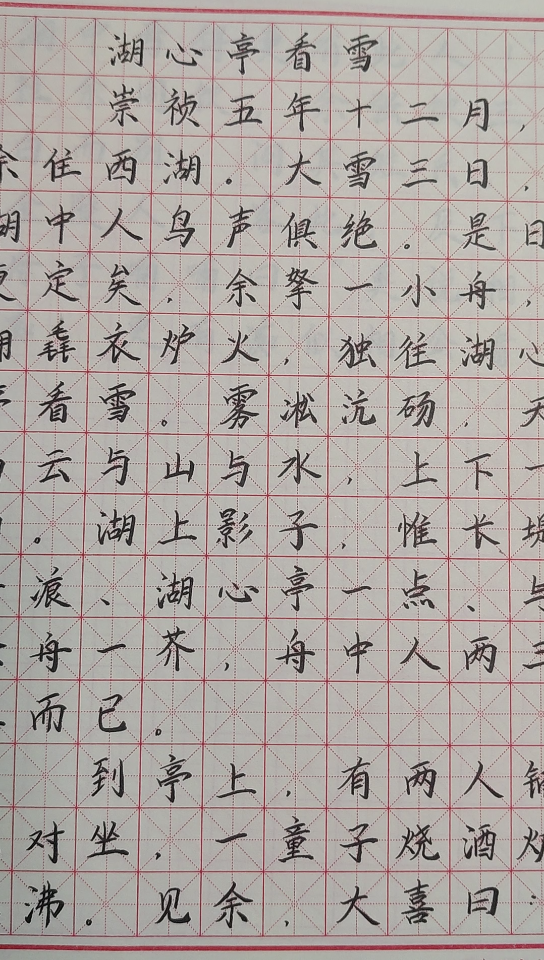 湖心亭看雪
崇祯五年十二月，
余住西湖。大雪三日，
湖中人鸟声俱绝。是日
更定矣，余拏一小舟，
拥毳衣炉火，独往湖心
亭看雪。雾凇沆砀，天
与云与山与水，上下一
白。湖上影子，惟长堤
一痕、湖心亭一点、与
余舟一芥，舟中人两三
粒而已。
到亭上，有两人铺
对坐，一童子烧酒炉
沸。见余，大喜曰：